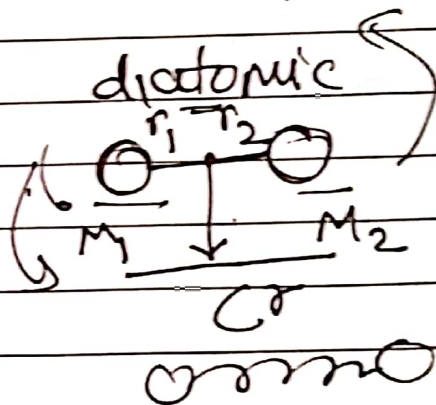 diatomic
r1 r2
M1 M2